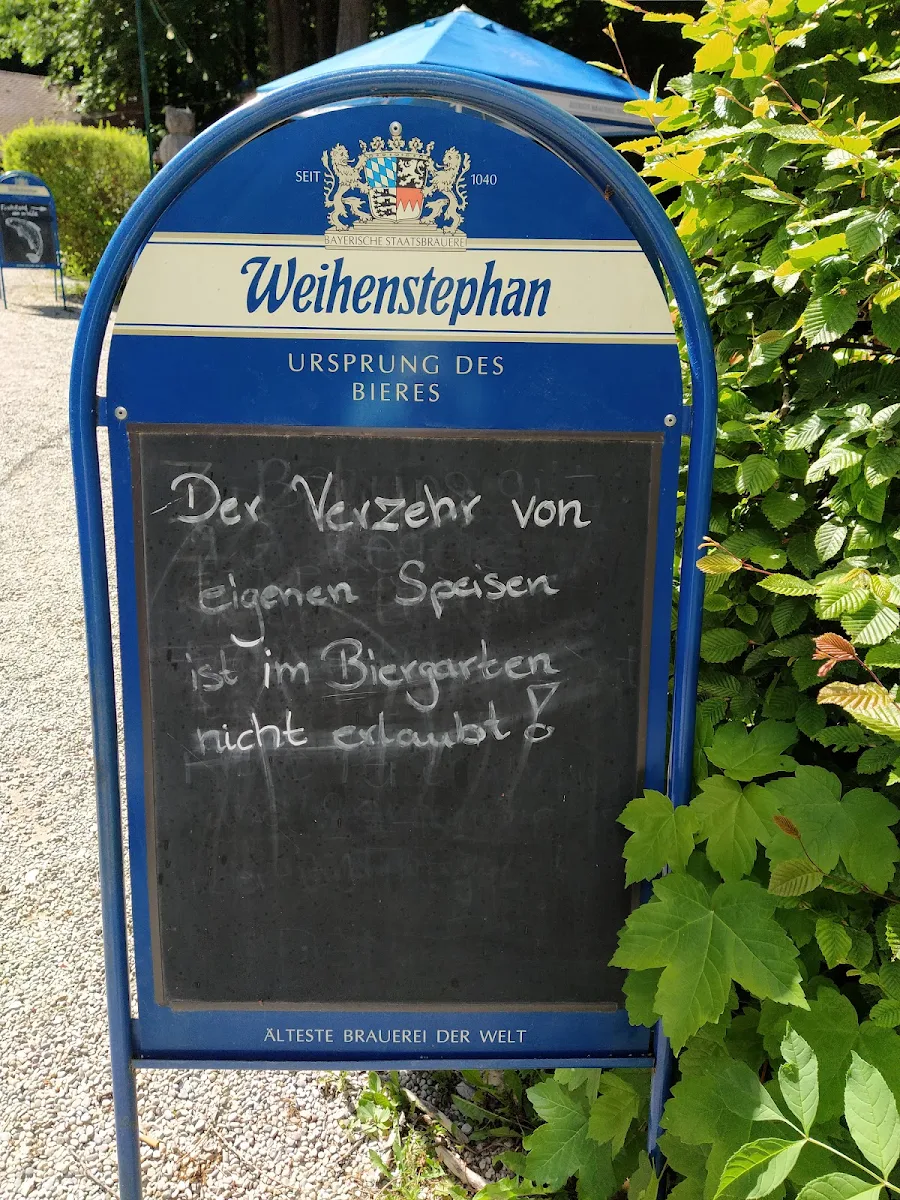 SEIT 1040
BAYERISCHE STAATSBRAUEREI
Weihenstephan
URSPRUNG DES
BIERES
Der Verzehr von
eigenen Speisen
ist im Biergarten
nicht erlaubt!
ÄLTESTE BRAUEREI DER WELT